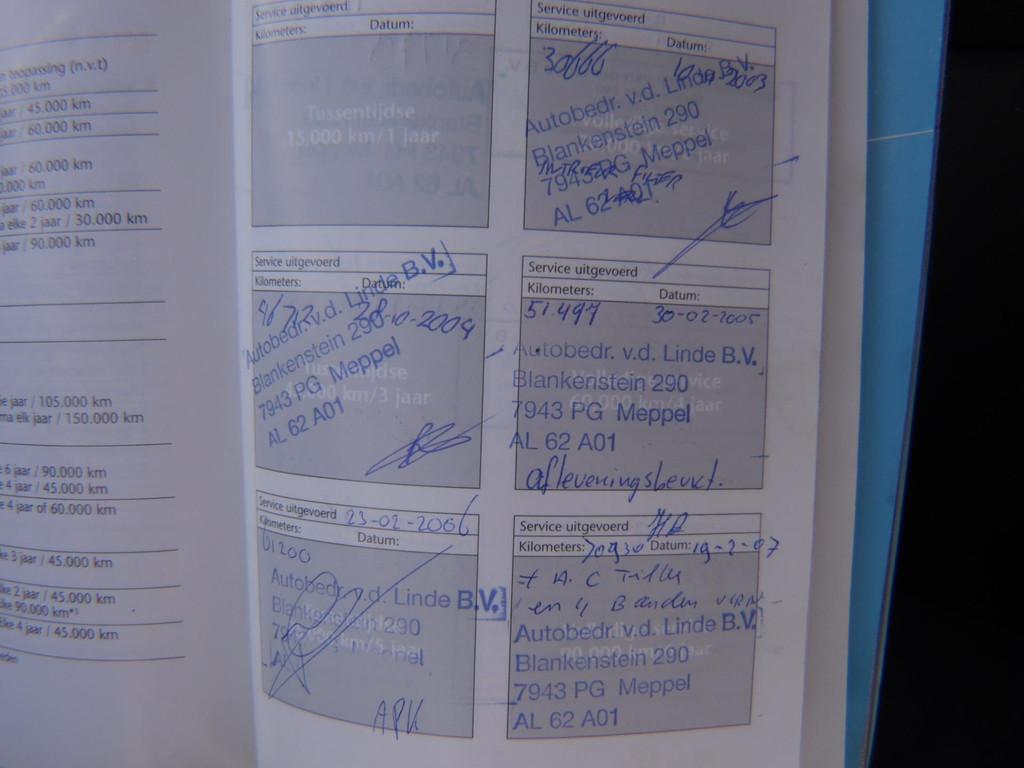 n toepassing (n.v.t)
15.000 km
aar / 45.000 km
aar / 60.000 km
jaar / 60.000 km
0.000 km
jaar / 60.000 km
a elke 2 jaar / 30.000 km
jaar / 90.000 km
6e jaar / 105.000 km
ma elk jaar / 150.000 km
e 6 jaar / 90.000 km
e 4 jaar / 45.000 km
e 4 jaar of 60.000 km
ke 3 jaar / 45.000 km
ke 2 jaar / 45.000 km
lke 90.000 km*³
Elke 4 jaar / 45.000 km
Service uitgevoerd
Kilometers: Datum:
Tussentijdse
15.000 km/1 jaar
Service uitgevoerd
Kilometers: Datum:
2003
Autobedr. v.d. Linde B.V.
Blankenstein 290
7943 PG Meppel
FILTER
AL 62 A01
Service uitgevoerd
Kilometers: Datum:
28-10-2004
Autobedr. v.d. Linde B.V.
Blankenstein 290
7943 PG Meppel
AL 62 A01
Tussentijdse
km/3 jaar
Service uitgevoerd
Kilometers: Datum:
51.497 30-02-2005
Autobedr. v.d. Linde B.V.
Blankenstein 290
7943 PG Meppel
AL 62 A01
km/4 jaar
afleveringsbeurt.
Service uitgevoerd 23-02-2006
Kilometers: Datum:
61200
Autobedr. v.d. Linde B.V.
Blankenstein 290
APK
Service uitgevoerd
Kilometers: 70930 Datum: 19-2-07
+ A.C Filter
en 4 Banden
Autobedr. v.d. Linde B.V.
Blankenstein 290
7943 PG Meppel
AL 62 A01